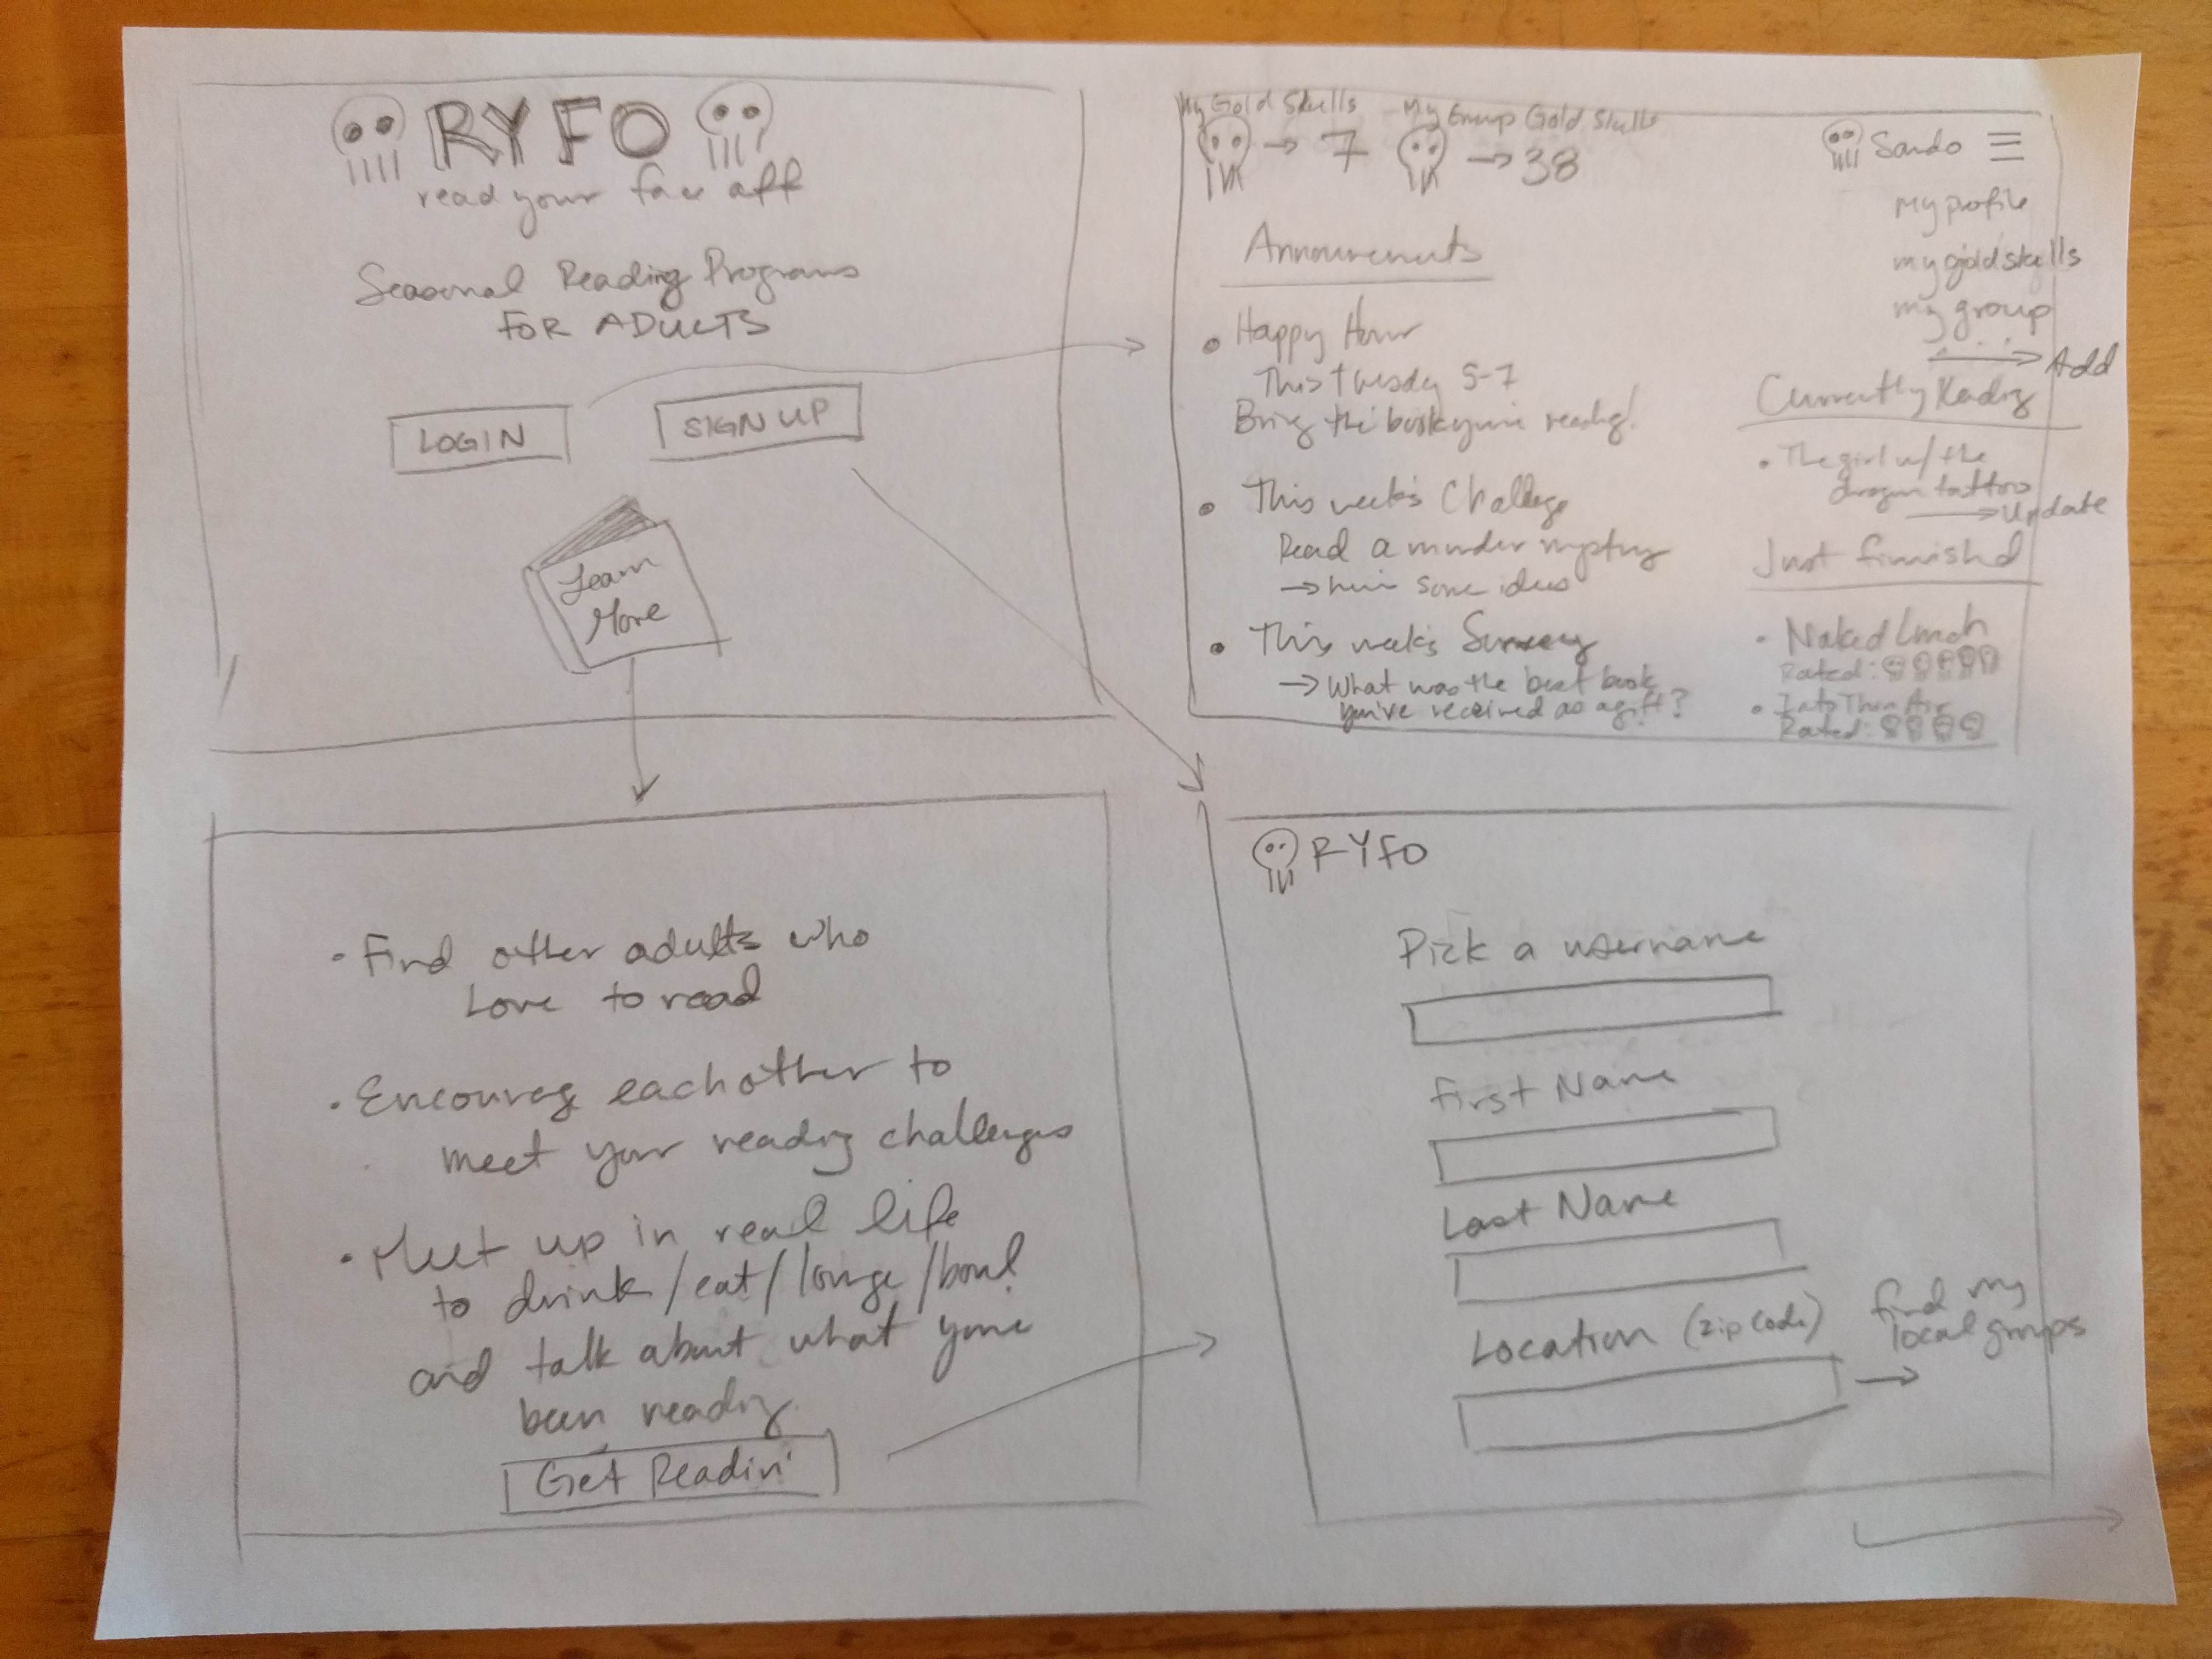 RYFO
read your face off
Seasonal Reading Programs
FOR ADULTS
LOGIN
SIGN UP
Learn
More
My Gold Skulls
→ 7
My Group Gold Skulls
→ 38
Sando
My profile
my gold skulls
my group
...
→ Add
Announcements
• Happy Hour
This tuesday 5-7
Bring the book you're reading!
• This week's Challenge
Read a murder mystery
→ here's some ideas
• This week's Survey
→ What was the best book
you've received as a gift?
Currently Reading
• The girl w/ the
dragon tattoo
→ Update
Just finished
• Naked Lunch
Rated:
• Into Thin Air
Rated:
• Find other adults who
Love to read
• Encourage each other to
meet your reading challenges
• Meet up in real life
to drink/eat/lounge/bowl
and talk about what you've
been reading.
Get Readin'
RYFO
Pick a username
First Name
Last Name
Location (zip code)
find my
local groups
→